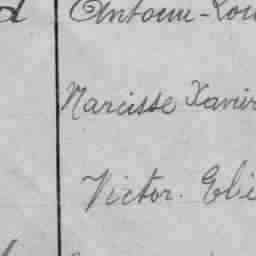 Antoine-Lou
Narcisse Xavier
Victor. Eli